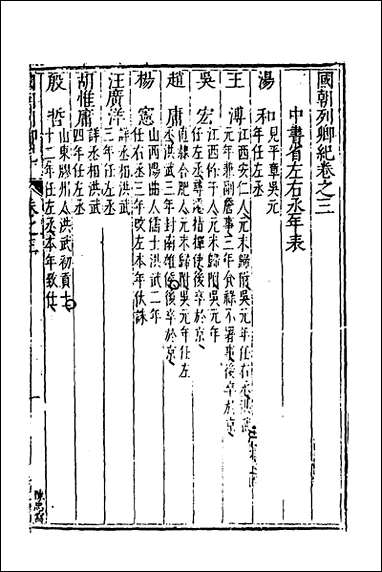 國朝列卿紀卷之三
中書省左右丞年表
湯和
見平章吳元
年任左丞
王溥
江西安仁人元末歸附吳元年任右丞洪武
元年兼副詹事三年食祿不署事後卒於京
吳宏
江西 人元末歸附吳元年
任左丞尋 指揮使後卒於京
趙庸
直隸合肥人元末歸附吳元年任左
丞洪武三年封南雄侯後卒於京
楊憲
山西陽曲人儒士洪武二年
任右丞三年改左本年伏誅
汪廣洋
詳丞相洪武
三年任左丞
胡惟庸
詳丞相洪武
四年任左丞
殷哲
山東膠州人洪武初貢士
十二年任左丞本年致仕
國朝列卿紀
卷之三
一